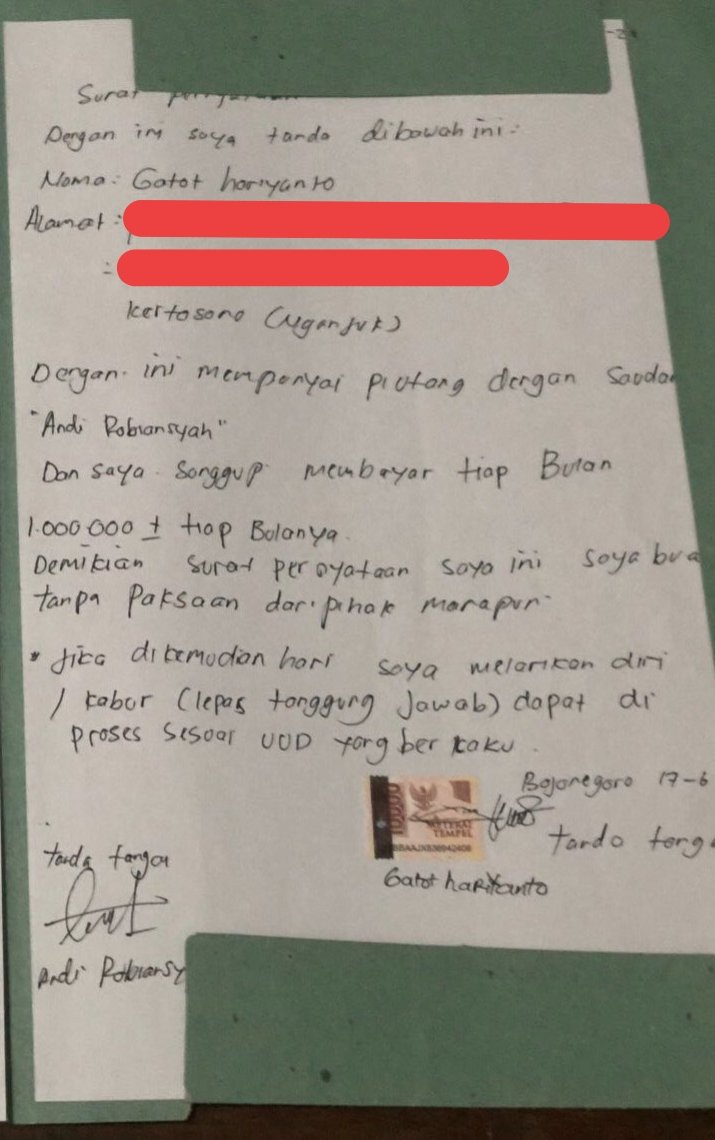 Surat
Dengan ini saya tanda dibawah ini:
Nama: Gatot hariyanto
Alamat:
:
Kertosono (Nganjuk)
Dengan ini mempunyai piutang dengan Saudar
"Andi Robiansyah"
Dan saya Sanggup membayar tiap Bulan
1.000.000 ± tiap Bulanya.
Demikian Surat pernyataan saya ini saya bua
tanpa Paksaan dari pihak manapun
* Jika dikemudian hari saya melarikan diri
/ kabur (lepas tanggung jawab) dapat di
proses sesuai UUD yang ber laku.
Bojonegoro 17-6
10000
METERAI
TEMPEL
Tanda tang
Gatot hariyanto
tanda tangan
Andi Robiansy